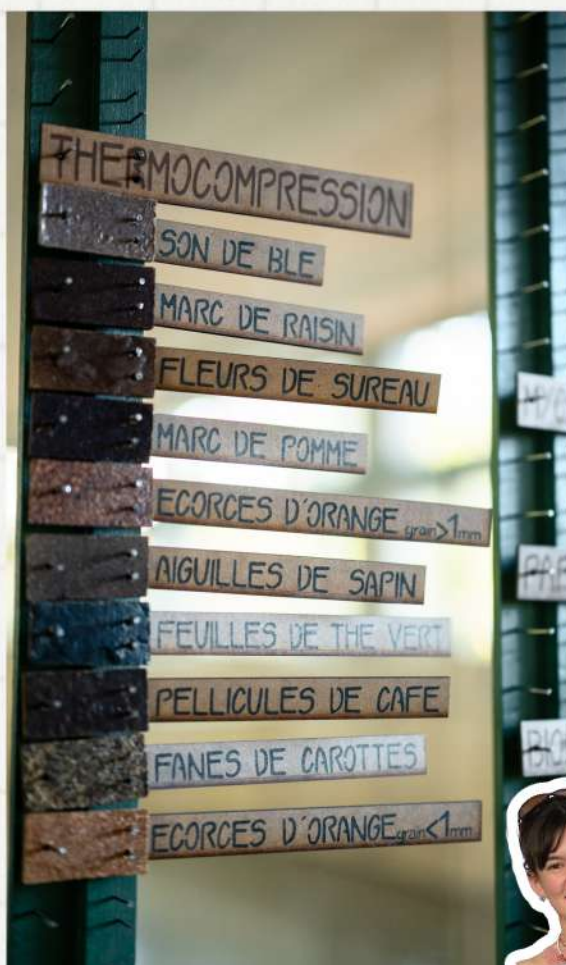 THERMOCOMPRESSION
SON DE BLE
MARC DE RAISIN
FLEURS DE SUREAU
MARC DE POMME
ECORCES D'ORANGE grain>1mm
AIGUILLES DE SAPIN
FEUILLES DE THE VERT
PELLICULES DE CAFE
FANES DE CAROTTES
ECORCES D'ORANGE grain<1mm